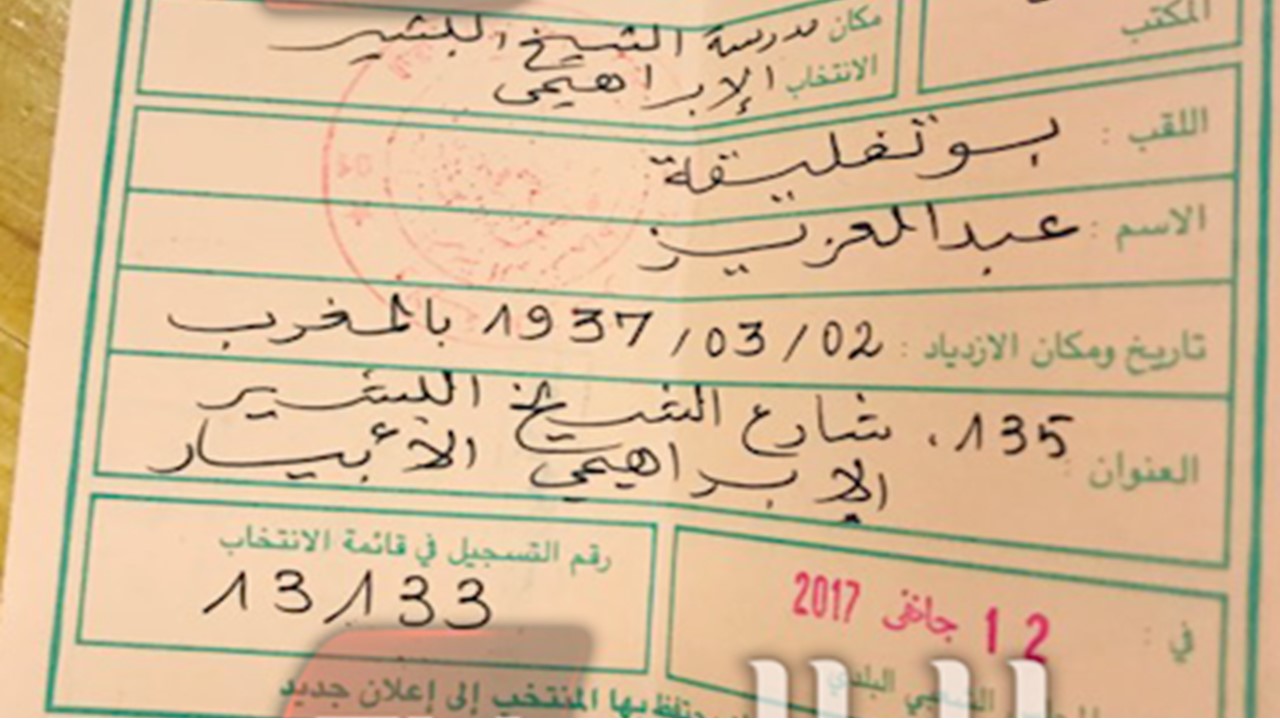 المكتب
مكان مدرسة الشيخ البشير
الانتخاب الإبراهيمي
اللقب : بوتفليقة
الاسم : عبدالعزيز
تاريخ ومكان الازدياد : 1937/03/02 بالمغرب
135، شارع الشيخ البشير
العنوان : الإبراهيمي الأبيار
رقم التسجيل في قائمة الانتخاب
13133
في : 12 جانفي 2017
الشعبي البلدي
يحتفظ بها المنتخب إلى إعلان جديد